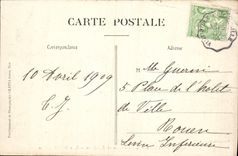 CARTE POSTALE
Correspondance
Adresse
10 Avril 1909
E. J.
Mlle Guerin
5 Place de l'Hotel
de Ville
Rouen
Seine Inférieure